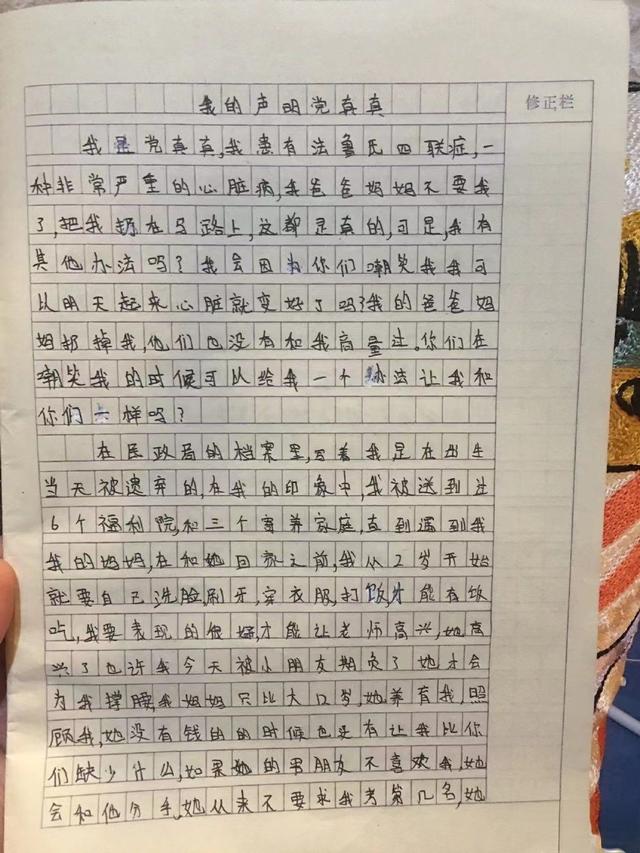 修正栏
我的声明党真真
我是党真真,我患有法鲁氏四联症,一
种非常严重的心脏病,我爸爸妈妈不要我
了,把我扔在马路上,这都是真的,可是,我有
其他办法吗?我会因为你们嘲笑我我可
以明天起来心脏就变好了吗?我的爸爸妈
妈扔掉我,他们也没有和我商量过。你们在
嘲笑我的时候可以给我一个办法让我和
你们一样吗?
在民政局的档案里,写着我是在出生
当天被遗弃的,在我的印象中,我被送到过
6个福利院,和三个寄养家庭,直到遇到我
我的妈妈,在和她回家之前,我从2岁开始
就要自己洗脸,刷牙,穿衣服,打饭,才能有饭
吃,我要表现的很好,才能让老师高兴,她高
兴了也许我今天被小朋友期负了她才会
为我撑腰,我妈妈只比大12岁,她养育我,照
顾我,她没有钱的的时候也没有让我比你
们缺少什么,如果她的男朋友不喜欢我,她
会和他分手,她从来不要求我考第几名,她